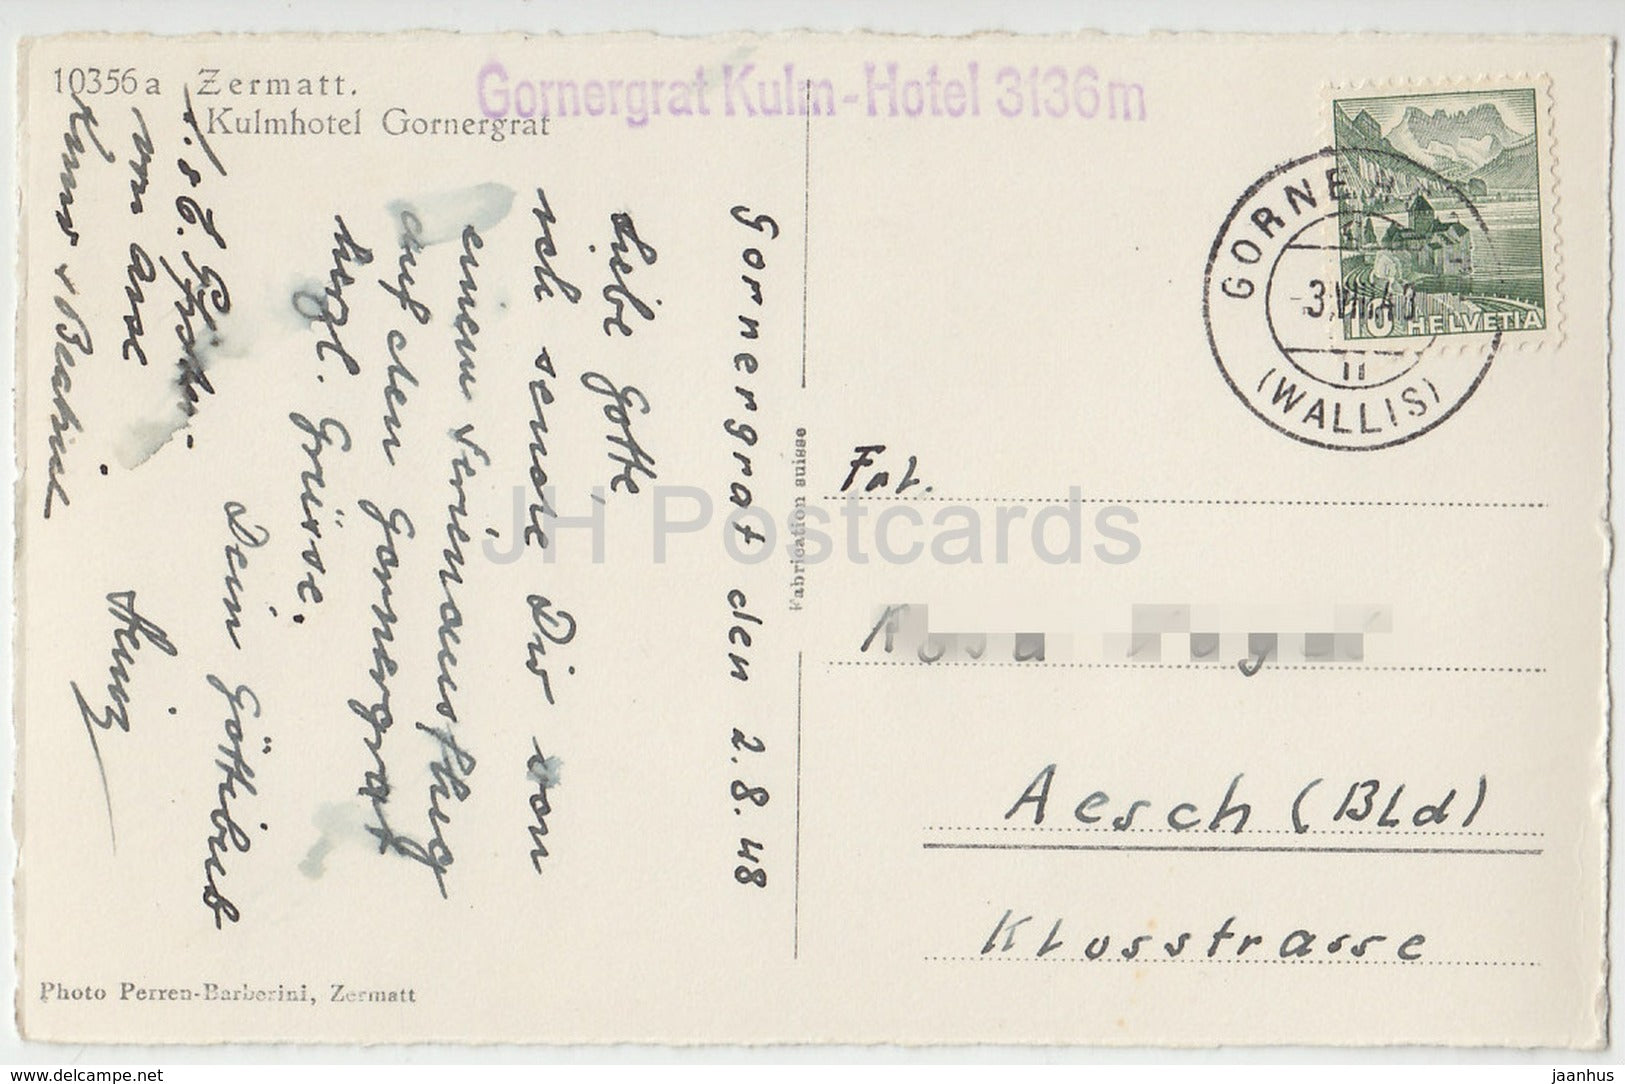 10356a Zermatt.
Kulmhotel Gornergrat
Gornergrat Kulm-Hotel 3136m
Gornergrat den 2.8.48
Liebe Gotte,
ich sende Dir von
einem Ferienausflug
auf den Gornergrat
herzl. Grüsse.
Dein Göttibub
Heinz
Fabrication suisse
GORNE
-3.VIII.48
(WALLIS)
10 HELVETIA
Frl.
Aesch (Bld)
Klosstrasse
Photo Perren-Barberini, Zermatt
JH Postcards
https://www.delcampe.net
jaanhus